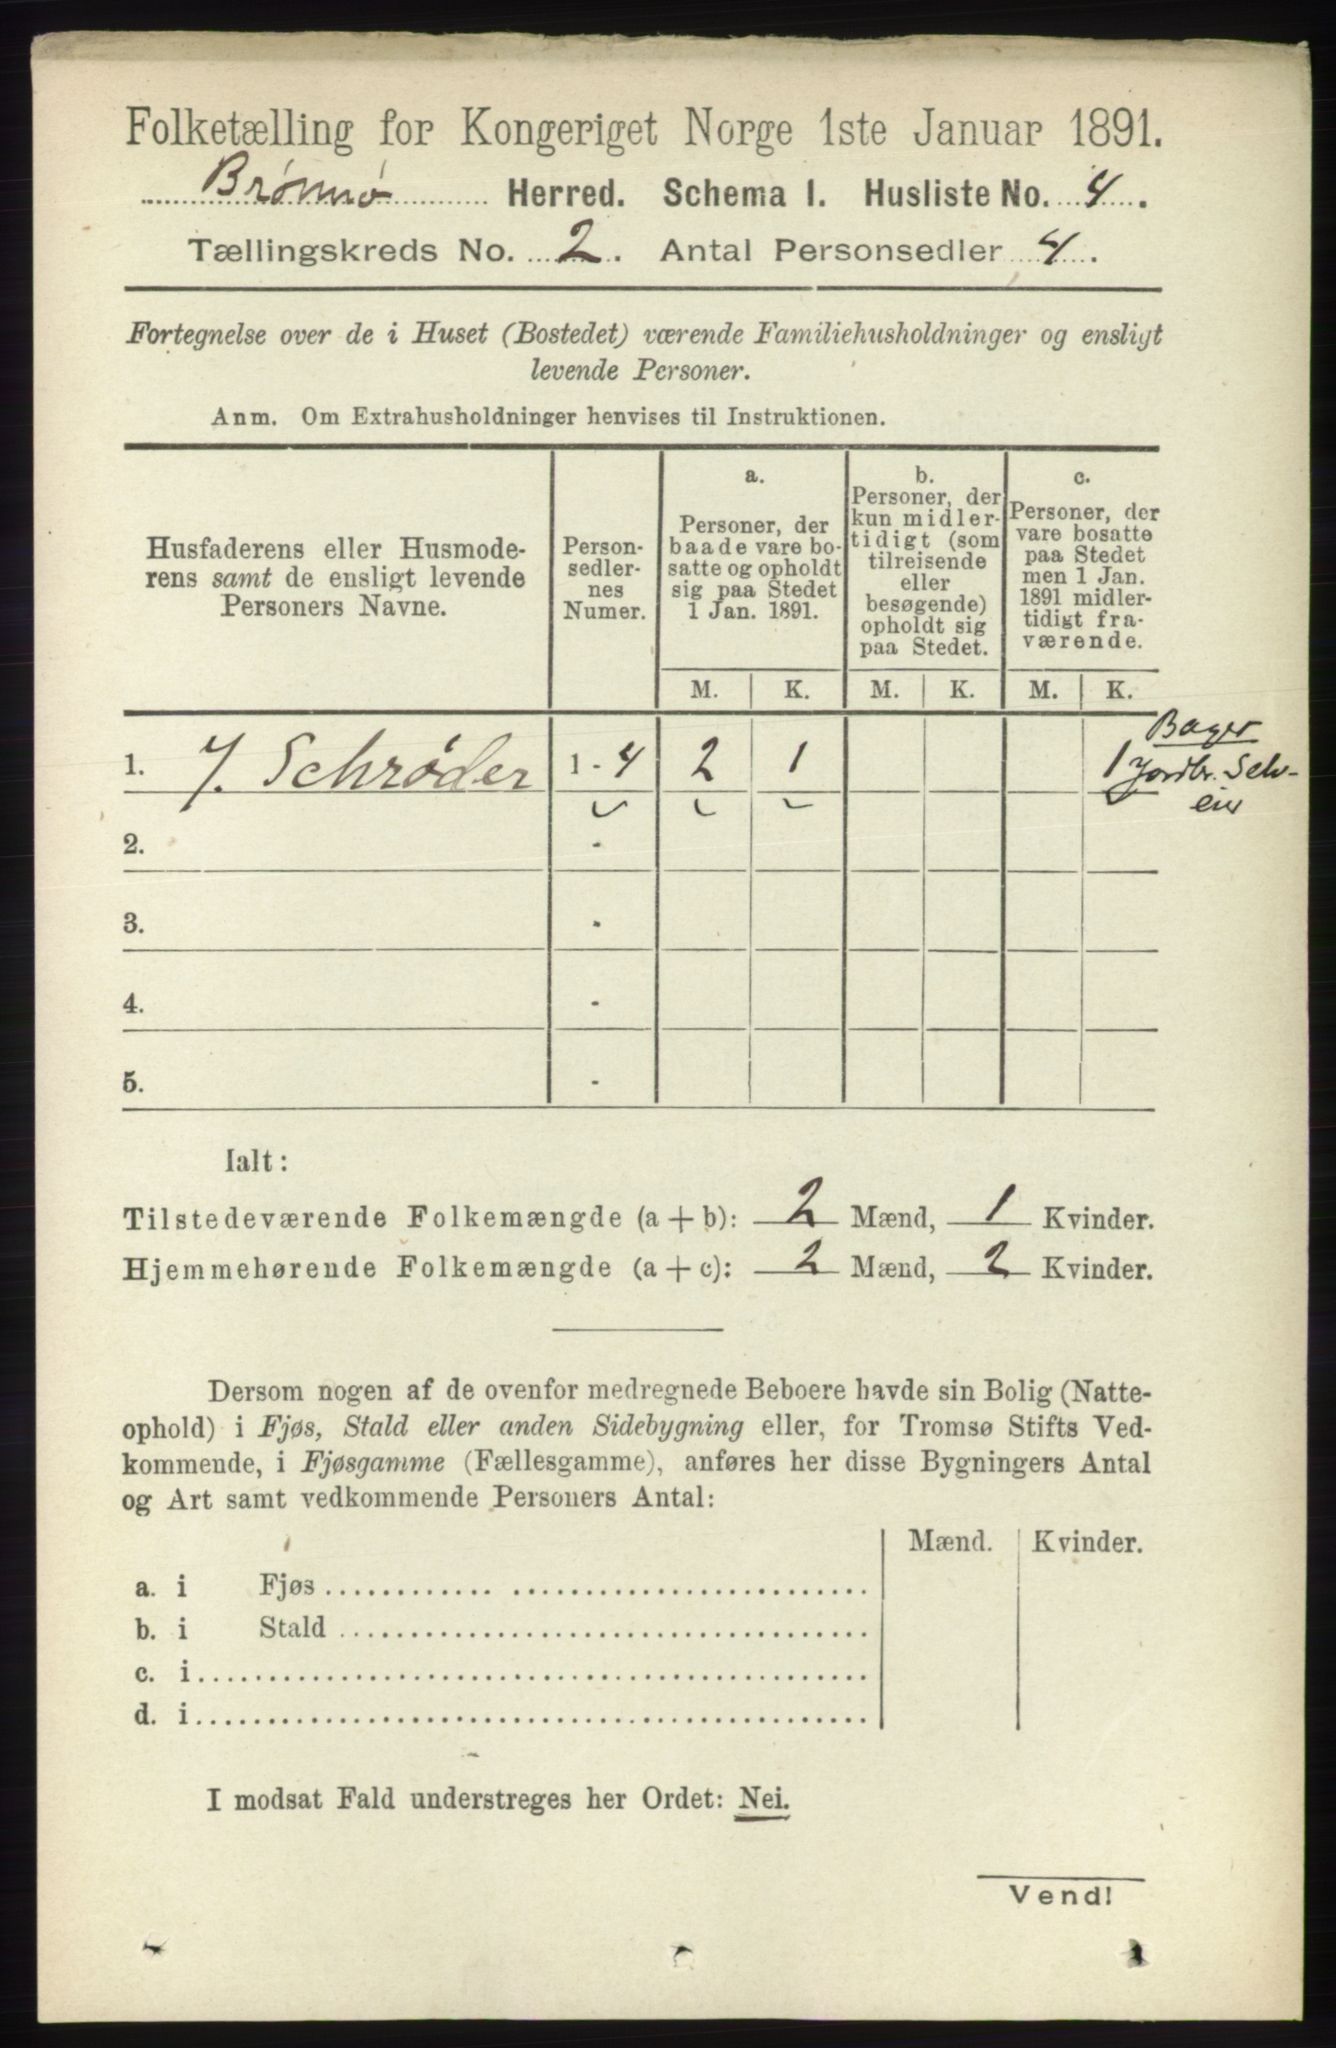 Folketælling for Kongeriget Norge 1ste Januar 1891.
Brønnø Herred. Schema I. Husliste No. 4.
Tællingskreds No. 2. Antal Personsedler 4.
Fortegnelse over de i Huset (Bostedet) værende Familiehusholdninger og ensligt
levende Personer.
Anm. Om Extrahusholdninger henvises til Instruktionen.
Husfaderens eller Husmode-
rens samt de ensligt levende
Personers Navne.
Person-
sedler-
nes
Numer.
a.
Personer, der
baade vare bo-
satte og opholdt
sig paa Stedet
1 Jan. 1891.
b.
Personer, der
kun midler-
tidigt (som
tilreisende
eller
besøgende)
opholdt sig
paa Stedet.
c.
Personer, der
vare bosatte
paa Stedet
men 1 Jan.
1891 midler-
tidigt fra-
værende.
M. K. M. K. M. K.
1. J. Schrøder 1 - 4 2 1 1
Bager
Jordbr. Selv-
eier
2. -
3. -
4. -
5. -
Ialt:
Tilstedeværende Folkemængde (a + b): 2 Mænd, 1 Kvinder.
Hjemmehørende Folkemængde (a + c): 2 Mænd, 2 Kvinder.
Dersom nogen af de ovenfor medregnede Beboere havde sin Bolig (Natte-
ophold) i Fjøs, Stald eller anden Sidebygning eller, for Tromsø Stifts Ved-
kommende, i Fjøsgamme (Fællesgamme), anføres her disse Bygningers Antal
og Art samt vedkommende Personers Antal:
Mænd. Kvinder.
a. i Fjøs
b. i Stald
c. i
d. i
I modsat Fald understreges her Ordet: Nei.
Vend!